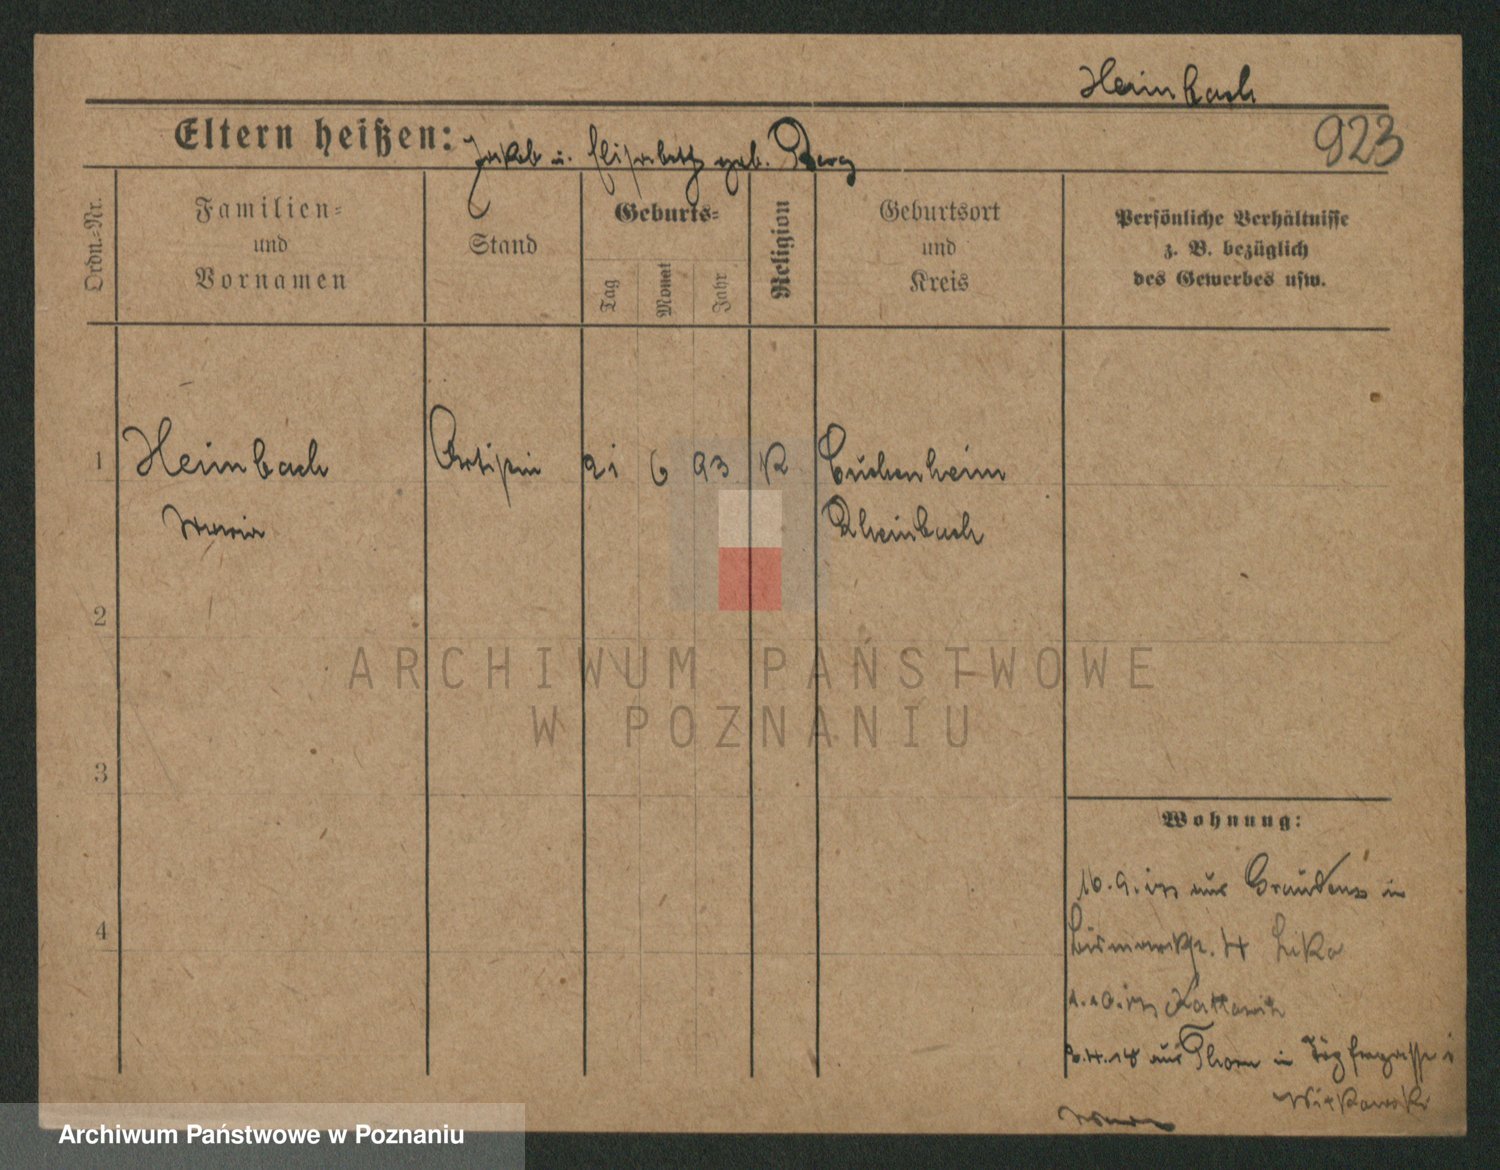 Heimbach
923
Eltern heißen: Jakob u. Elisabeth geb. Berg
Ordn.-Nr.
Familien-
und
Vornamen
Stand
Geburts-
Tag
Monat
Jahr
Religion
Geburtsort
und
Kreis
Persönliche Verhältnisse
z. B. bezüglich
des Gewerbes usw.
1 Heimbach Artistin 21 6 93 K Cuchenheim
Maria Rheinbach
2
3
4
Wohnung:
16.9.17 aus Graudenz in
Bismarckstr. 4
Kattowitz
aus Thorn in Töpfergasse 1
ARCHIWUM PAŃSTWOWE
W POZNANIU
Archiwum Państwowe w Poznaniu